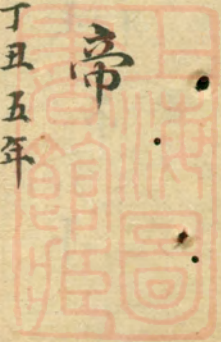 帝
丁丑五年
上海圖
書館藏